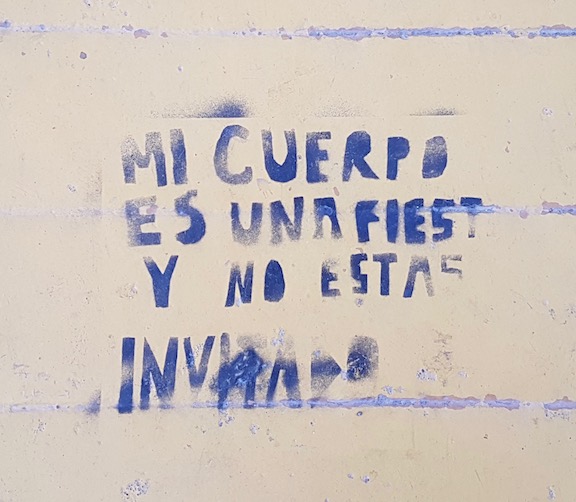 MI CUERPO
ES UNA FIEST
Y NO ESTAS
INVITADO